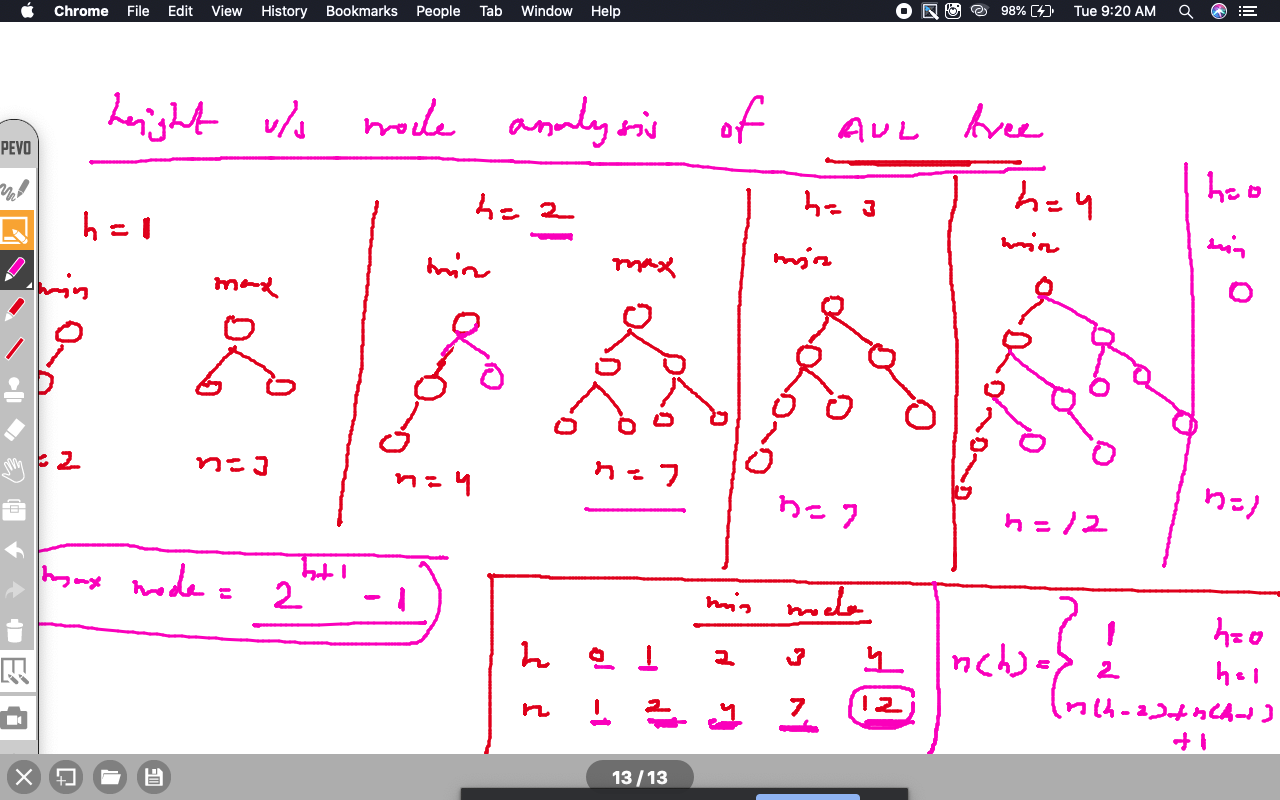 Chrome File Edit View History Bookmarks People Tab Window Help 98% Tue 9:20 AM
height v/s node analysis of AVL tree
PEVO
h = 1
h = 2
h = 3
h = 4
h = 0
min max
min max
min
min
min
= 2
n = 3
n = 4
n = 7
n = 7
n = 12
n = 1
max node = 2^{h+1} - 1
min node
h 0 1 2 3 4
n 1 2 4 7 12
n(h) = { 1 h=0
2 h=1
n(h-2)+n(h-1)
+1
13 / 13